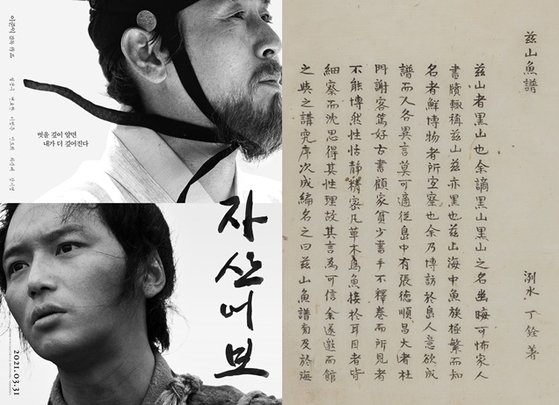 이준익 감독 작품
벗을 깊이 알면
내가 더 깊어진다
자산어보
2021.03.31
茲山魚譜
洌水 丁銓 著
茲山者黑山也余謫黑山黑山之名幽晦可怖家人
書牘輒稱茲山茲亦黑也茲山海中魚族極繁而知
名者鮮博物者所宜察也余乃博訪於島人意欲成
譜而人各異言莫可適從島中有張德順昌大者杜
門謝客篤好古書顧家貧少書手不釋卷而所見者
不能博然性恬靜精密凡草木鳥魚接於耳目者皆
細察而沈思得其性理故其言為可信余遂邀而館
之與之講究序次成編名之曰茲山魚譜旁及於海